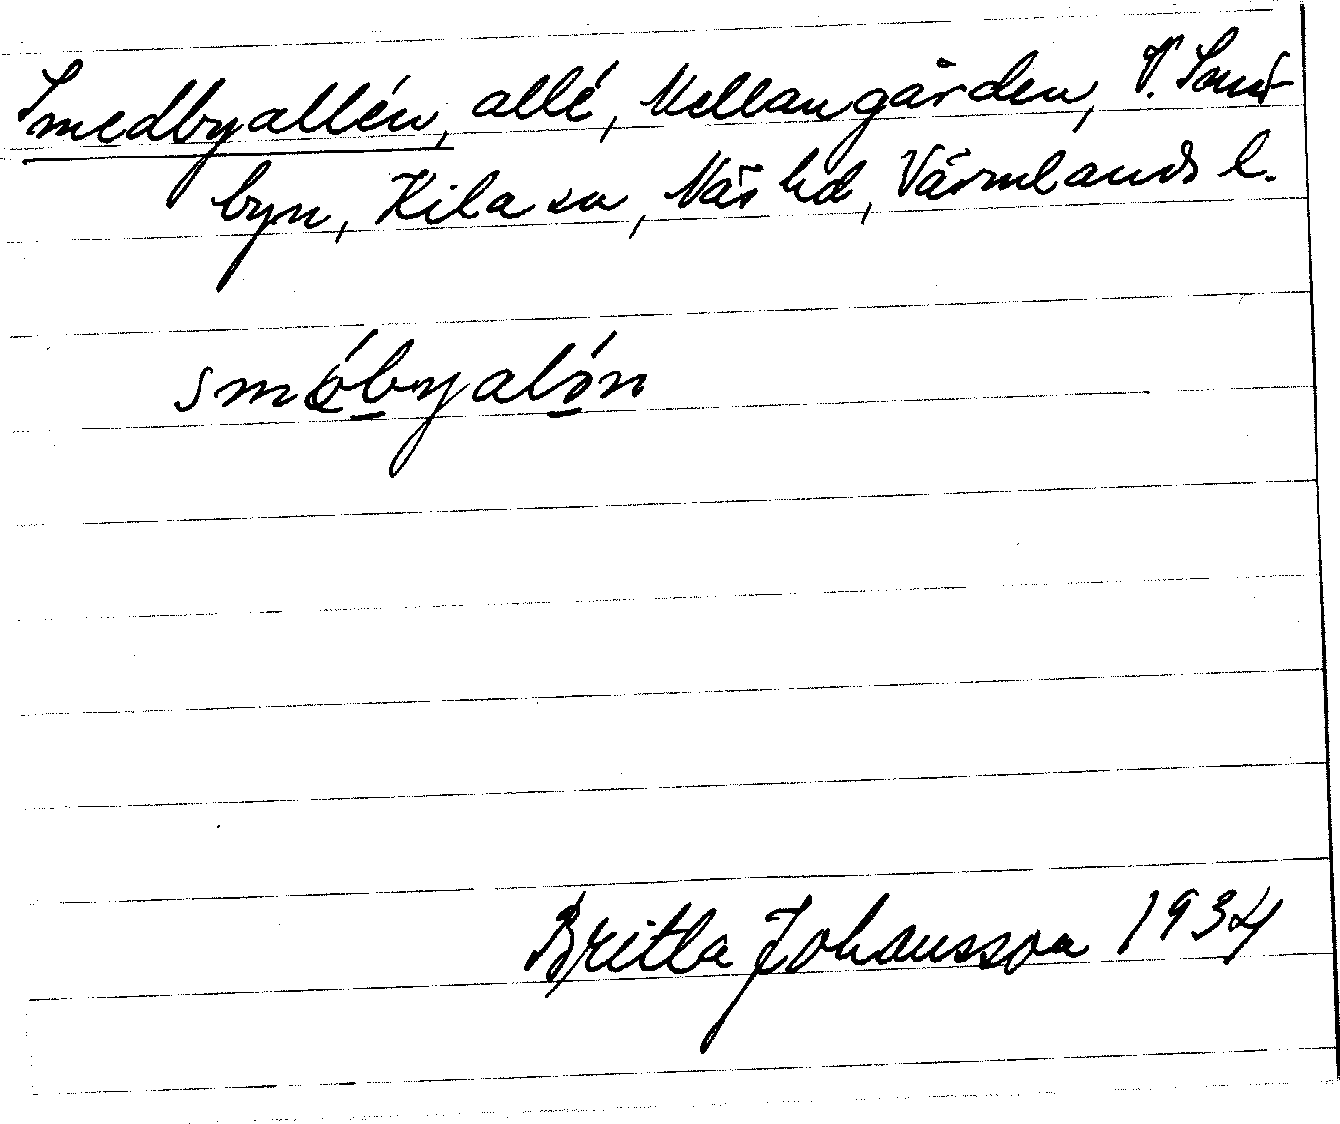 Smedbyallén, allé, Mellangården, V. Smed-
byn, Kila sn, Näs hd, Värmlands l.
Britta Johansson 1934